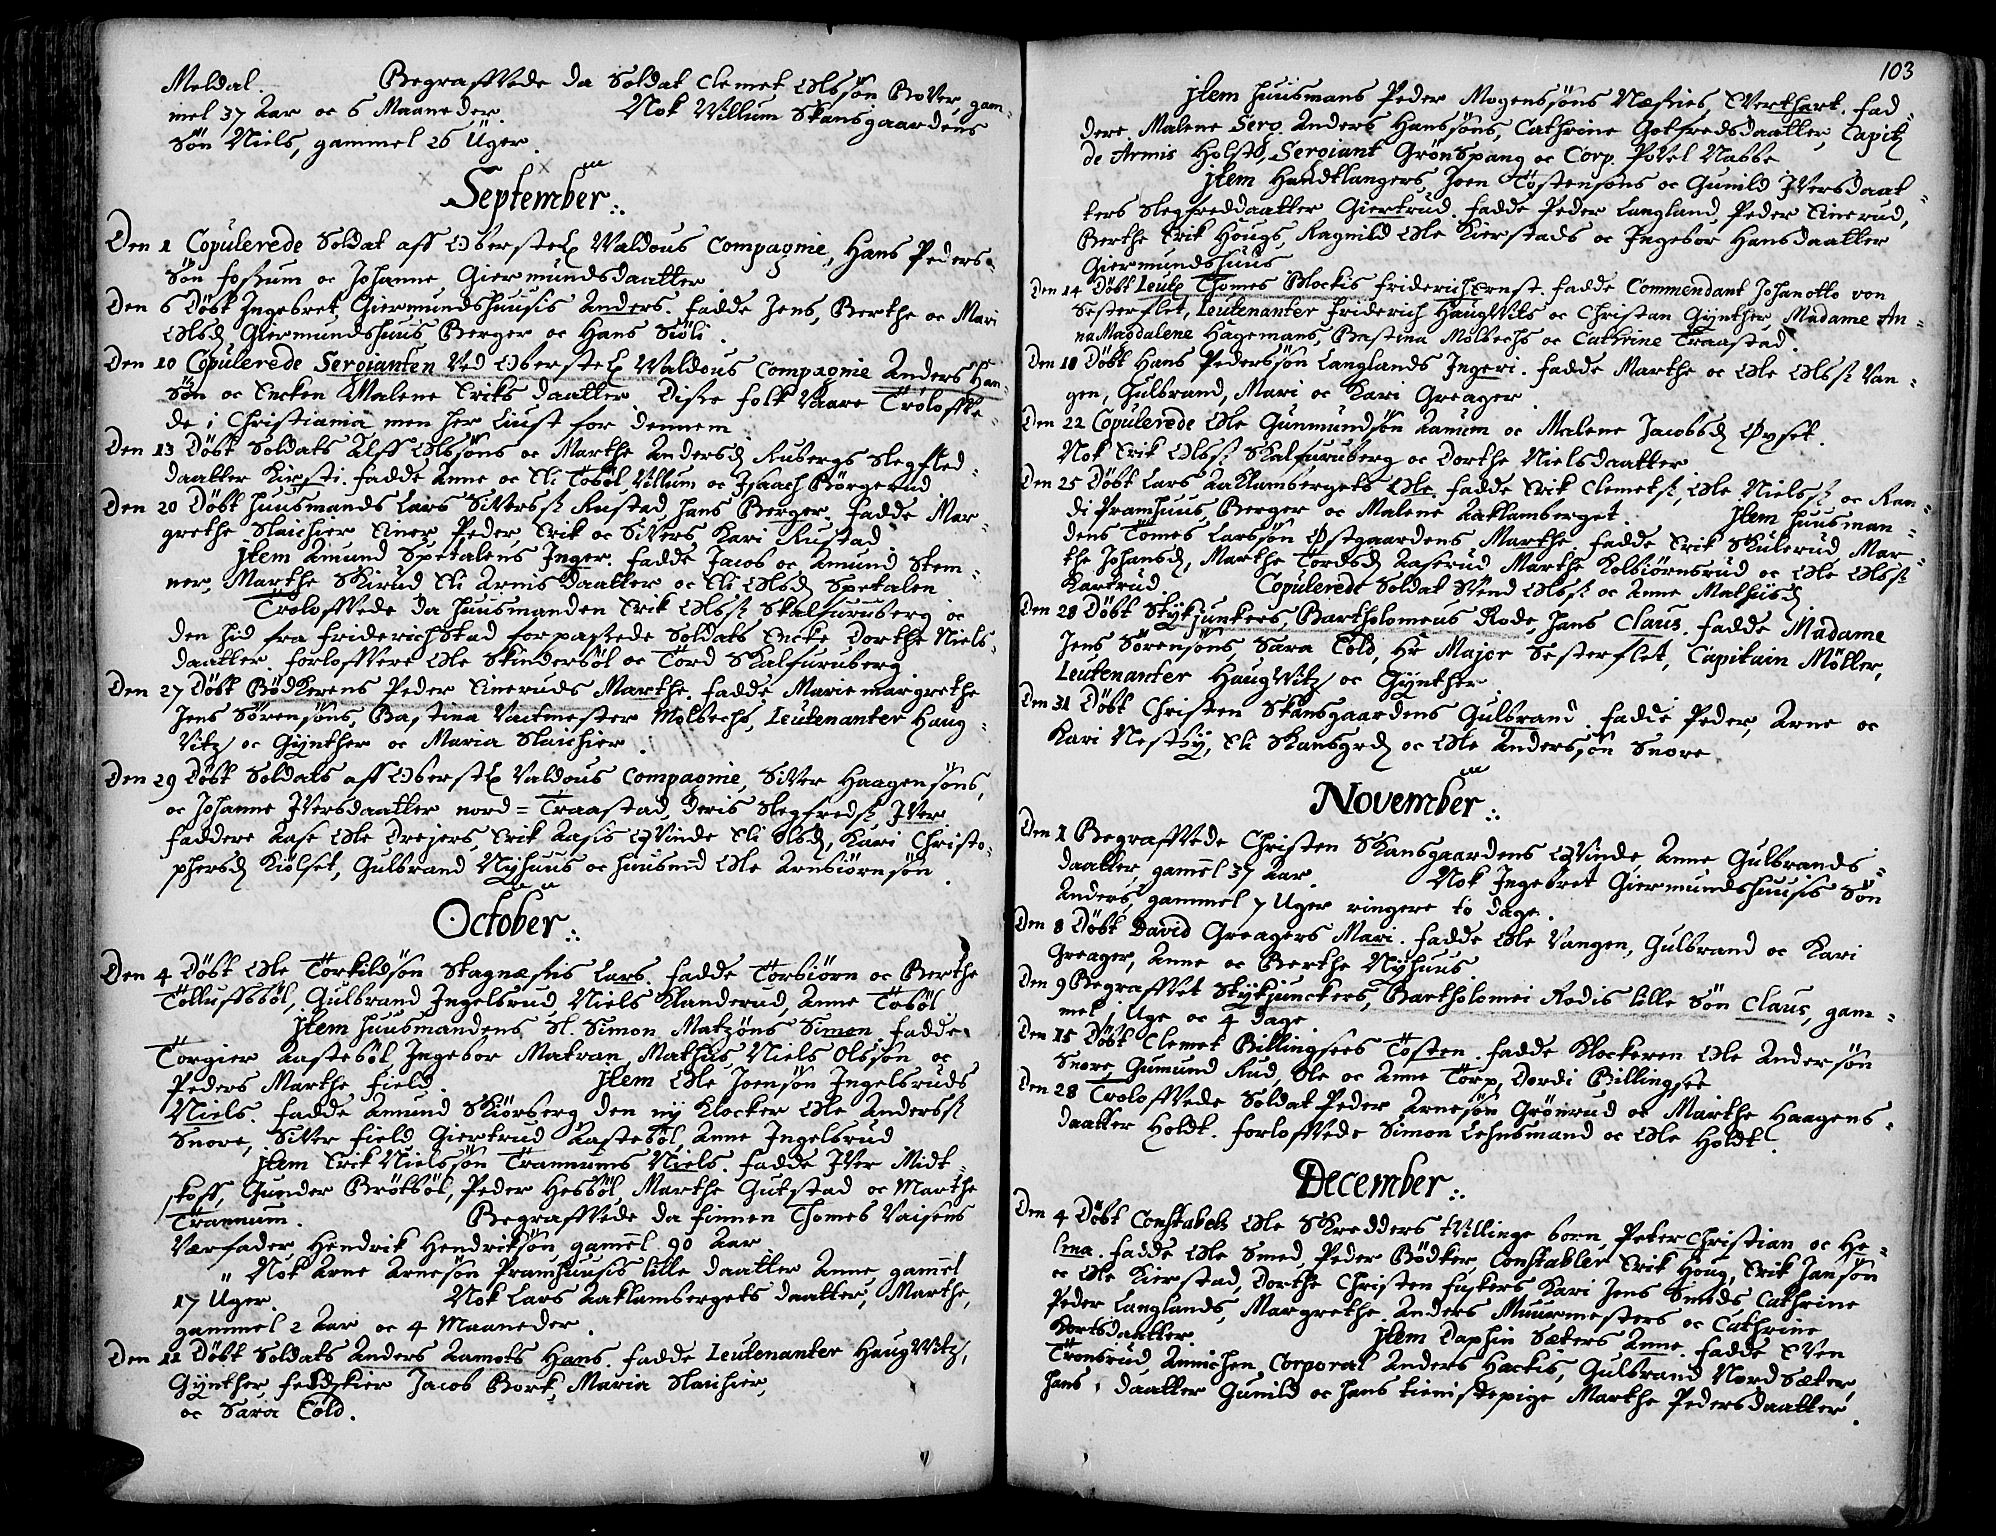 Meldal. Begraffvede da Soldat Clemet Olssøn Bover, gam-
mel 37 Aar oc 6 Maaneder. Nok Villum Skansgaardens
Søn Niels, gammel 26 Uger.
September.
Den 1 Copulerede Soldat aff Oberste Waldous Compagnie, Hans Peders-
Søn fossum oc Johanne Giermundsdaatter
Den 6 Døbt Ingebret Giermundshuusis Anders. fadde Jens, Berthe oc Mari
Olsd Giermundshuus Berger oc Hans Siøli.
Den 10 Copulerede Sergianten ved Oberste Waldous Compagnie Anders Han-
Søn oc Encken Malene Eriks daatter. Disse folk vaare Troloffve-
de i Christiania men her liust for dennem
Den 13 Døbt Soldats Alff Olssøns oc Marthe Andersd Rubergs Slegfred-
daatter Kirsti. fadde Anne oc Eli Tobøl Villum oc Isaach Børgerud
Den 20 Døbt huusmands Lars Siverss Rustad, hans Berger. fadde Mar-
grethe Slaichier Einer, Peder, Erik oc Sivers Kari Rustad
Item Amund Spetalens Inger. fadde Jacob oc Amund Stem-
ner, Marthe Skirud Eli Arnis daatter oc Eli Olsd Spetalen
Troloffvede da huusmanden Erik Olss Skalfuruberg oc
den hid fra friderichstad forpassede Soldats Encke Dorthe Niels-
daatter. forloffvere Ole Skindersøl oc Tord Skalfuruberg
Den 27 Døbt Bødkerens Peder Eineruds Marthe. fadde Mariemargrethe
Jens Sørensøns, Bastina Vactmester Molbechs, Leutenanter Haug-
Vitz oc Gynther oc Maria Slaichier.
Den 29 Døbt Soldats aff Oberste Valdous Compagnie, Siver Haagensøns,
oc Johanne Iversdaatter nord=Traastad, deris Slegfreds Iver
faddere Aase Ole Drejers, Erik Aasis Qvinde Eli Olsd, Kari Christo-
phersd Kiølset, Gulbrand Nyhuus oc huusmd Ole Arnbiørnsøn.
October.
Den 4 Døbt Ole Torkildsøn Skagnæssis Lars. fadde Torbiørn oc Berthe
Tolluffsbøl, Gulbrand Ingelsrud, Niels Klanderud, Anne Tobøl
Item huusmandens Sl. Simon Matzøns Simon. fadde
Torgier Aastebøl Ingebor Matran, Mathis Niels Olssøn oc
Peders Marthe field. Item Ole Joensøn Ingelsruds
Niels. fadde Amund Skiørberg den ny klocker Ole Anderss
Snore, Siver field, Giertrud Aastebøl, Anne Ingelsrud
Item Erik Nielssøn Trannums Niels. fadde Iver Midt-
skoff, Gunder Brøtbøl, Peder Hesbøl, Marthe Gutstad oc Marthe
Trannum. Begraffvede da finnen Thomes Vaisens
Værfader Hendrik Hendriksøn gamel 90 Aar
Nok Arne Arnesøn Pramhuusis lille daatter Anne gamel
17 Uger. Nok Lars Aaklambergets daatter, Marthe,
gammel 2 Aar oc 4 Maaneder.
Den 11 Døbt Soldats Anders Aamots Hans. fadde Leutenanter Haugwitz,
Gynther, feldskier Jacob Bork, Maria Slaichier,
oc Sara Cold.
103
Item huusmans Peder Mogensøns Næssies, Everthart. fad-
dere Malene Serg. Anders Hanssøns, Cathrine Gotfredsdaatter, Capit
de Armis Holst, Sergiant Grønspang oc Corp. Povel Nabbe
Item Handtlangers Joen Tostensøns oc Gunild Iversdaat-
ters Slegfreddaatter Giertrud. fadde Peder Langland, Peder Einerud,
Berthe Erik Hougs, Ragnild Ole Kierstads oc Ingebor Hansdaatter
Giermundshuus
Den 14 Døbt Leut Thomes Blockis friderich Ernst. fadde Commendant Johanotto von
Sesterflet, Leutenanter friderich HaugWits oc Christan Gynther, Madame An-
na Magdalene Hagemans, Bastina Molbechs oc Cathrine Traastad.
Den 18 Døbt Hans Pederssøn Langlands Ingeri. fadde Marthe oc Ole Olss Van-
gen, Gulbrand, Mari oc Kari Greager
Den 22 Copulerede Ole Gunmundsøn Aanum oc Malene Jacobsd Øyset.
Nok Erik Olss Skalfuruberg oc Dorthe Nielsdaatter
Den 25 Døbt Lars Aaklambergets Ole. fadde Erik Clemets, Ole Nielss oc Ran-
di Pramhuus Berger oc Malene Aaklamberget. Item huusman-
dens Tomes Larssøn Østgaardens Marthe fadde Erik Skulerud, Mar-
the Johansd, Marthe Tordsd Aaserud Marthe Kolbiørnsrud oc Ole Olss
Kartrud Copulerede Soldat Svend Olss oc Anne Mathisd
Den 28 Døbt Stykjunkers, Bartholomeus Rode, hans Claus. fadde Madame
Jens Sørensøns, Sara Cold, Hr Major Sesterflet, Capitain Møller,
Leutenanter HaugWitz oc Gynther
Den 31 Døbt Christen Skansgaardens Gulbrand. fadde Peder, Arne oc
Kari Nestby, Eli Skansgrd oc Ole Anderssøn Snore.
November.
Den 1 Begraffvede Christen Skansgaardens Qvinde Anne Gulbrands-
daatter, gamel 37 Aar. Nok Ingebret Giermundshuusis Søn
Anders, gammel 7 Uger ringere to dage.
Den 8 Døbt David Greagers Mari. fadde Ole Vangen, Gulbrand oc Kari
Greager, Anne oc Berthe Nyhuus
Den 9 Begraffvet Stykjunckers, Bartholomei Rodis lille Søn Claus, gam-
mel 1 Uge oc 4 dage
Den 15 Døbt Clemet Billingsees Tosten. fadde Klockeren Ole Andersøn
Snore, Gumund Rud, Ole oc Anne Torp, Dordi Billingsee
Den 28 Troloffvede Soldat Peder Arnesøn Grønrud oc Marthe Haagens-
daatter Holdt. forloffvede Simon Lehnsmand oc Ole Holdt.
December.
Den 4 Døbt Constabels Ole Skredders tvillinge born, Peter Christian oc He-
lena. fadde Ole Smed, Peder Bødker, Constabler Erik Houg, Erik Jansøn
oc Ole Kierstad, Dorthe Christen fiskers Kari Jens Smeds Cathrine
Peder Langlands, Margrethe Anders Muurmesters oc Cathrine
Kortsdaatter Item Daphin Sæters Anne. fadde Even
Tronsrud Annichen Corporal Anders Hackis, Gulbrand Nordsæter,
hans daatter Gunild oc hans tienistepige Marthe Pedersdaatter.